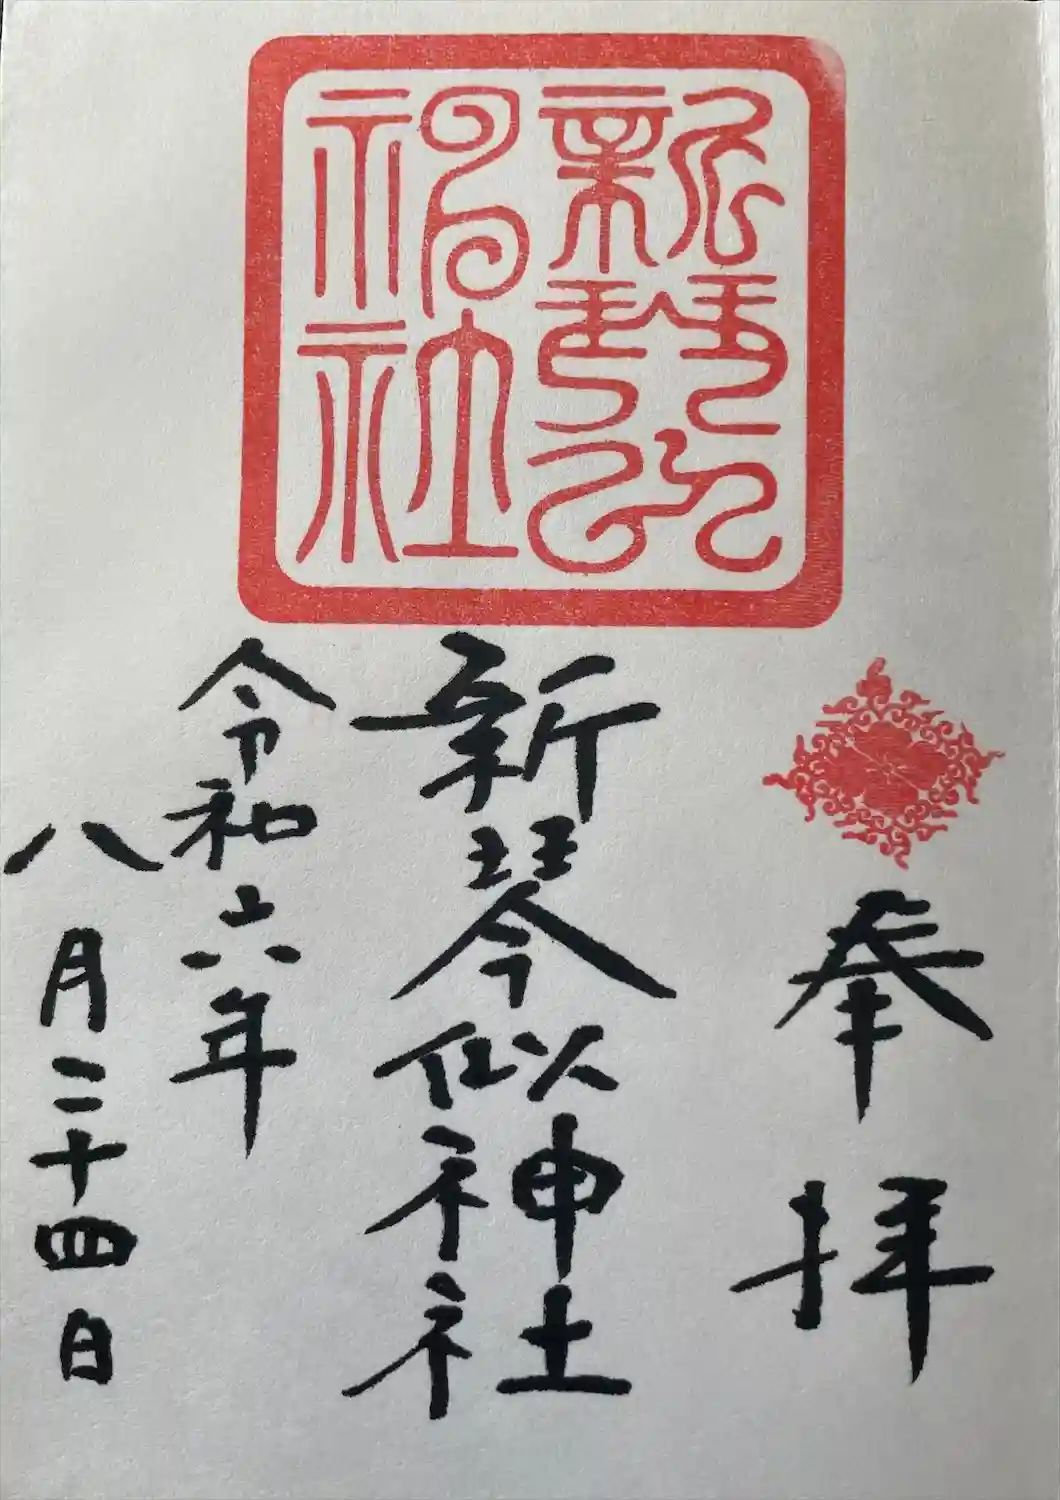 新琴似
神社
奉拝
新琴似神社
令和六年
八月二十四日